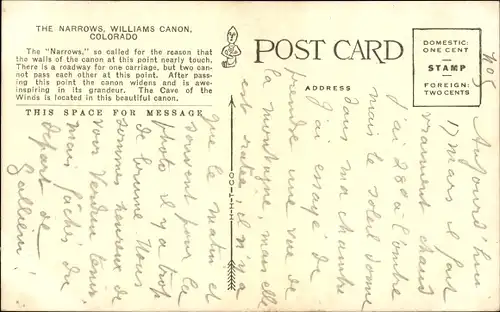 THE NARROWS, WILLIAMS CANON,
COLORADO
The "Narrows," so called for the reason that
the walls of the canon at this point nearly touch.
There is a roadway for one carriage, but two can-
not pass each other at this point. After pass-
ing this point the canon widens and is awe-
inspiring in its grandeur. The Cave of the
Winds is located in this beautiful canon.
THIS SPACE FOR MESSAGE
POST CARD
ADDRESS
DOMESTIC:
ONE CENT
STAMP
FOREIGN:
TWO CENTS
Aujourd'hui
17 mars il fait
vraiment chaud
j'ai 28° à l'ombre
mais le soleil donne
dans ma chambre
J'ai essayé de
prendre une vue de
la montagne, mais elle
est ratée, il n'y a
que le matin et
souvent pour la
photo il y a trop
de brume Nous
sommes heureux de
voir Verdun tenir
mais fâchés du
départ de
Gallieni!